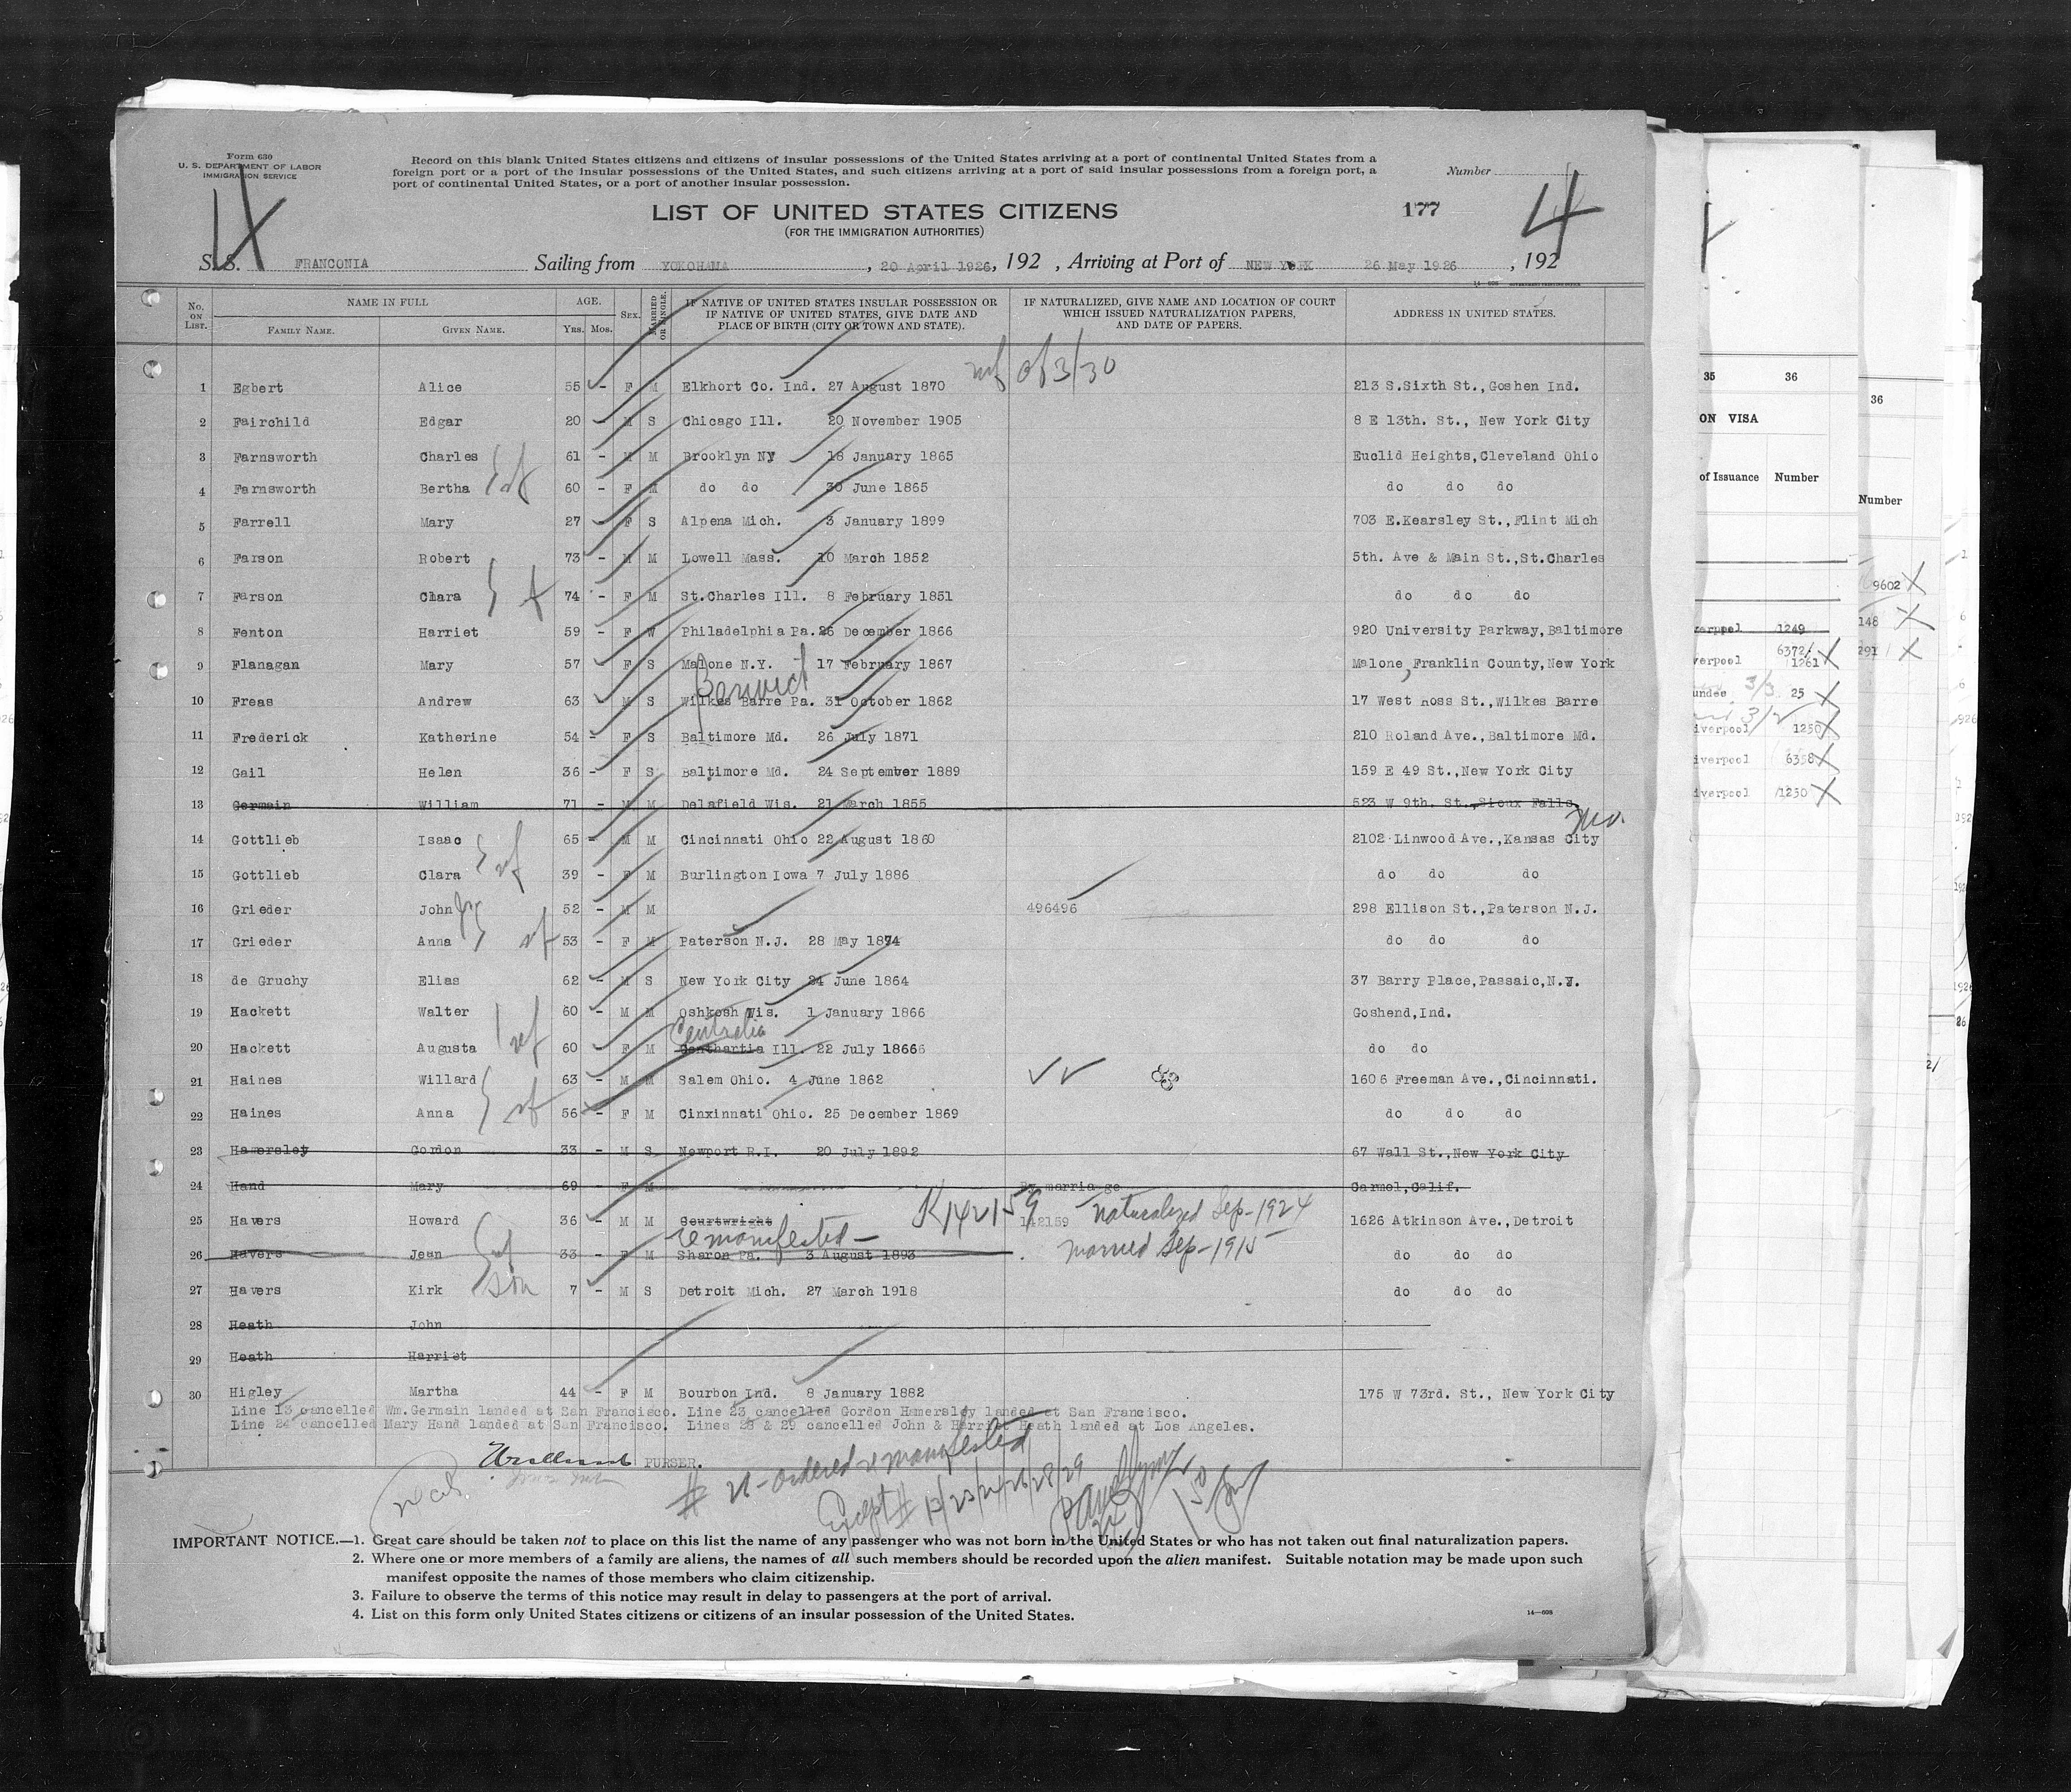 Form 630
U. S. DEPARTMENT OF LABOR
IMMIGRATION SERVICE
Record on this blank United States citizens and citizens of insular possessions of the United States arriving at a port of continental United States from a
foreign port or a port of the insular possessions of the United States, and such citizens arriving at a port of said insular possessions from a foreign port, a
port of continental United States, or a port of another insular possession.
Number
4
LIST OF UNITED STATES CITIZENS
177
4
(FOR THE IMMIGRATION AUTHORITIES)
S. S. FRANCONIA Sailing from YOKOHAMA, 20 April 1926, 192 , Arriving at Port of NEW YORK 26 May 1926, 192
No. ON LIST. NAME IN FULL AGE. SEX. MARRIED OR SINGLE. IF NATIVE OF UNITED STATES INSULAR POSSESSION OR IF NATIVE OF UNITED STATES, GIVE DATE AND PLACE OF BIRTH (CITY OR TOWN AND STATE). IF NATURALIZED, GIVE NAME AND LOCATION OF COURT WHICH ISSUED NATURALIZATION PAPERS, AND DATE OF PAPERS. ADDRESS IN UNITED STATES.
FAMILY NAME. GIVEN NAME. Yrs. Mos.
1 Egbert Alice 55 - F M Elkhort Co. Ind. 27 August 1870 213 S.Sixth St., Goshen Ind.
2 Fairchild Edgar 20 M S Chicago Ill. 20 November 1905 8 E 13th. St., New York City
3 Farnsworth Charles 61 - M M Brooklyn NY 18 January 1865 Euclid Heights,Cleveland Ohio
4 Farnsworth Bertha 60 - F M do do 30 June 1865 do do do
5 Farrell Mary 27 F S Alpena Mich. 3 January 1899 703 E.Kearsley St.,Flint Mich
6 Farson Robert 73 - M M Lowell Mass. 10 March 1852 5th. Ave & Main St.,St.Charles
7 Farson Clara 74 - F M St.Charles Ill. 8 February 1851 do do do
8 Fenton Harriet 59 - F W Philadelphia Pa. 26 December 1866 920 University Parkway,Baltimore
9 Flanagan Mary 57 - F S Malone N.Y. 17 February 1867 Malone, Franklin County,New York
Berwick
10 Freas Andrew 63 - M S Wilkes Barre Pa. 31 October 1862 17 West Ross St.,Wilkes Barre
11 Frederick Katherine 54 - F S Baltimore Md. 26 July 1871 210 Roland Ave.,Baltimore Md.
12 Gail Helen 36 - F S Baltimore Md. 24 September 1889 159 E 49 St.,New York City
13 Germain William 71 - M M Delafield Wis. 21 March 1855 523 W 9th. St.,Sioux Falls
Mo.
14 Gottlieb Isaac 65 - M M Cincinnati Ohio 22 August 1860 2102 Linwood Ave.,Kansas City
15 Gottlieb Clara 39 - F M Burlington Iowa 7 July 1886 do do do
16 Grieder John Jr 52 - M M 496496 298 Ellison St.,Paterson N.J.
17 Grieder Anna 53 - F M Paterson N.J. 28 May 1874 do do do
18 de Gruchy Elias 62 - M S New York City 24 June 1864 37 Barry Place,Passaic,N.J.
19 Hackett Walter 60 - M M Oshkosh Wis. 1 January 1866 Goshend,Ind.
Centralia
20 Hackett Augusta 60 - F M Centhartia Ill. 22 July 18666 do do
21 Haines Willard 63 - M M Salem Ohio. 4 June 1862 1606 Freeman Ave.,Cincinnati.
22 Haines Anna 56 - F M Cinxinnati Ohio. 25 December 1869 do do do
23 Hamersley Gordon 33 - M S Newport R.I. 20 July 1892 67 Wall St.,New York City
24 Hand Mary 69 - F M By marriage Carmel,Calif.
K142159
25 Havers Howard 36 - M M Courtwright 142159 naturalized Sep-1924 1626 Atkinson Ave.,Detroit
remanifested-
26 Havers Jean 33 - F M Sharon Pa. 3 August 1893 married Sep-1915 do do do
27 Havers Kirk son 7 - M S Detroit Mich. 27 March 1918 do do do
28 Heath John
29 Heath Harriet
30 Higley Martha 44 - F M Bourbon Ind. 8 January 1882 175 W 73rd. St., New York City
Line 13 cancelled Wm.Germain landed at San Francisco. Line 23 cancelled Gordon Hamersley landed at San Francisco.
Line 24 cancelled Mary Hand landed at San Francisco. Lines 28 & 29 cancelled John & Harriet Heath landed at Los Angeles.
PURSER.
# 26-ordered remanifested
Except # 13/23/24/26/28/29
IMPORTANT NOTICE.—1. Great care should be taken not to place on this list the name of any passenger who was not born in the United States or who has not taken out final naturalization papers.
2. Where one or more members of a family are aliens, the names of all such members should be recorded upon the alien manifest. Suitable notation may be made upon such
manifest opposite the names of those members who claim citizenship.
3. Failure to observe the terms of this notice may result in delay to passengers at the port of arrival.
4. List on this form only United States citizens or citizens of an insular possession of the United States.
14—608
35 36
ON VISA
of Issuance Number
1249
6372
verpool 1261
undee 25
iverpool 1250
iverpool 6358
iverpool 1250
36
Number
9602
148
291